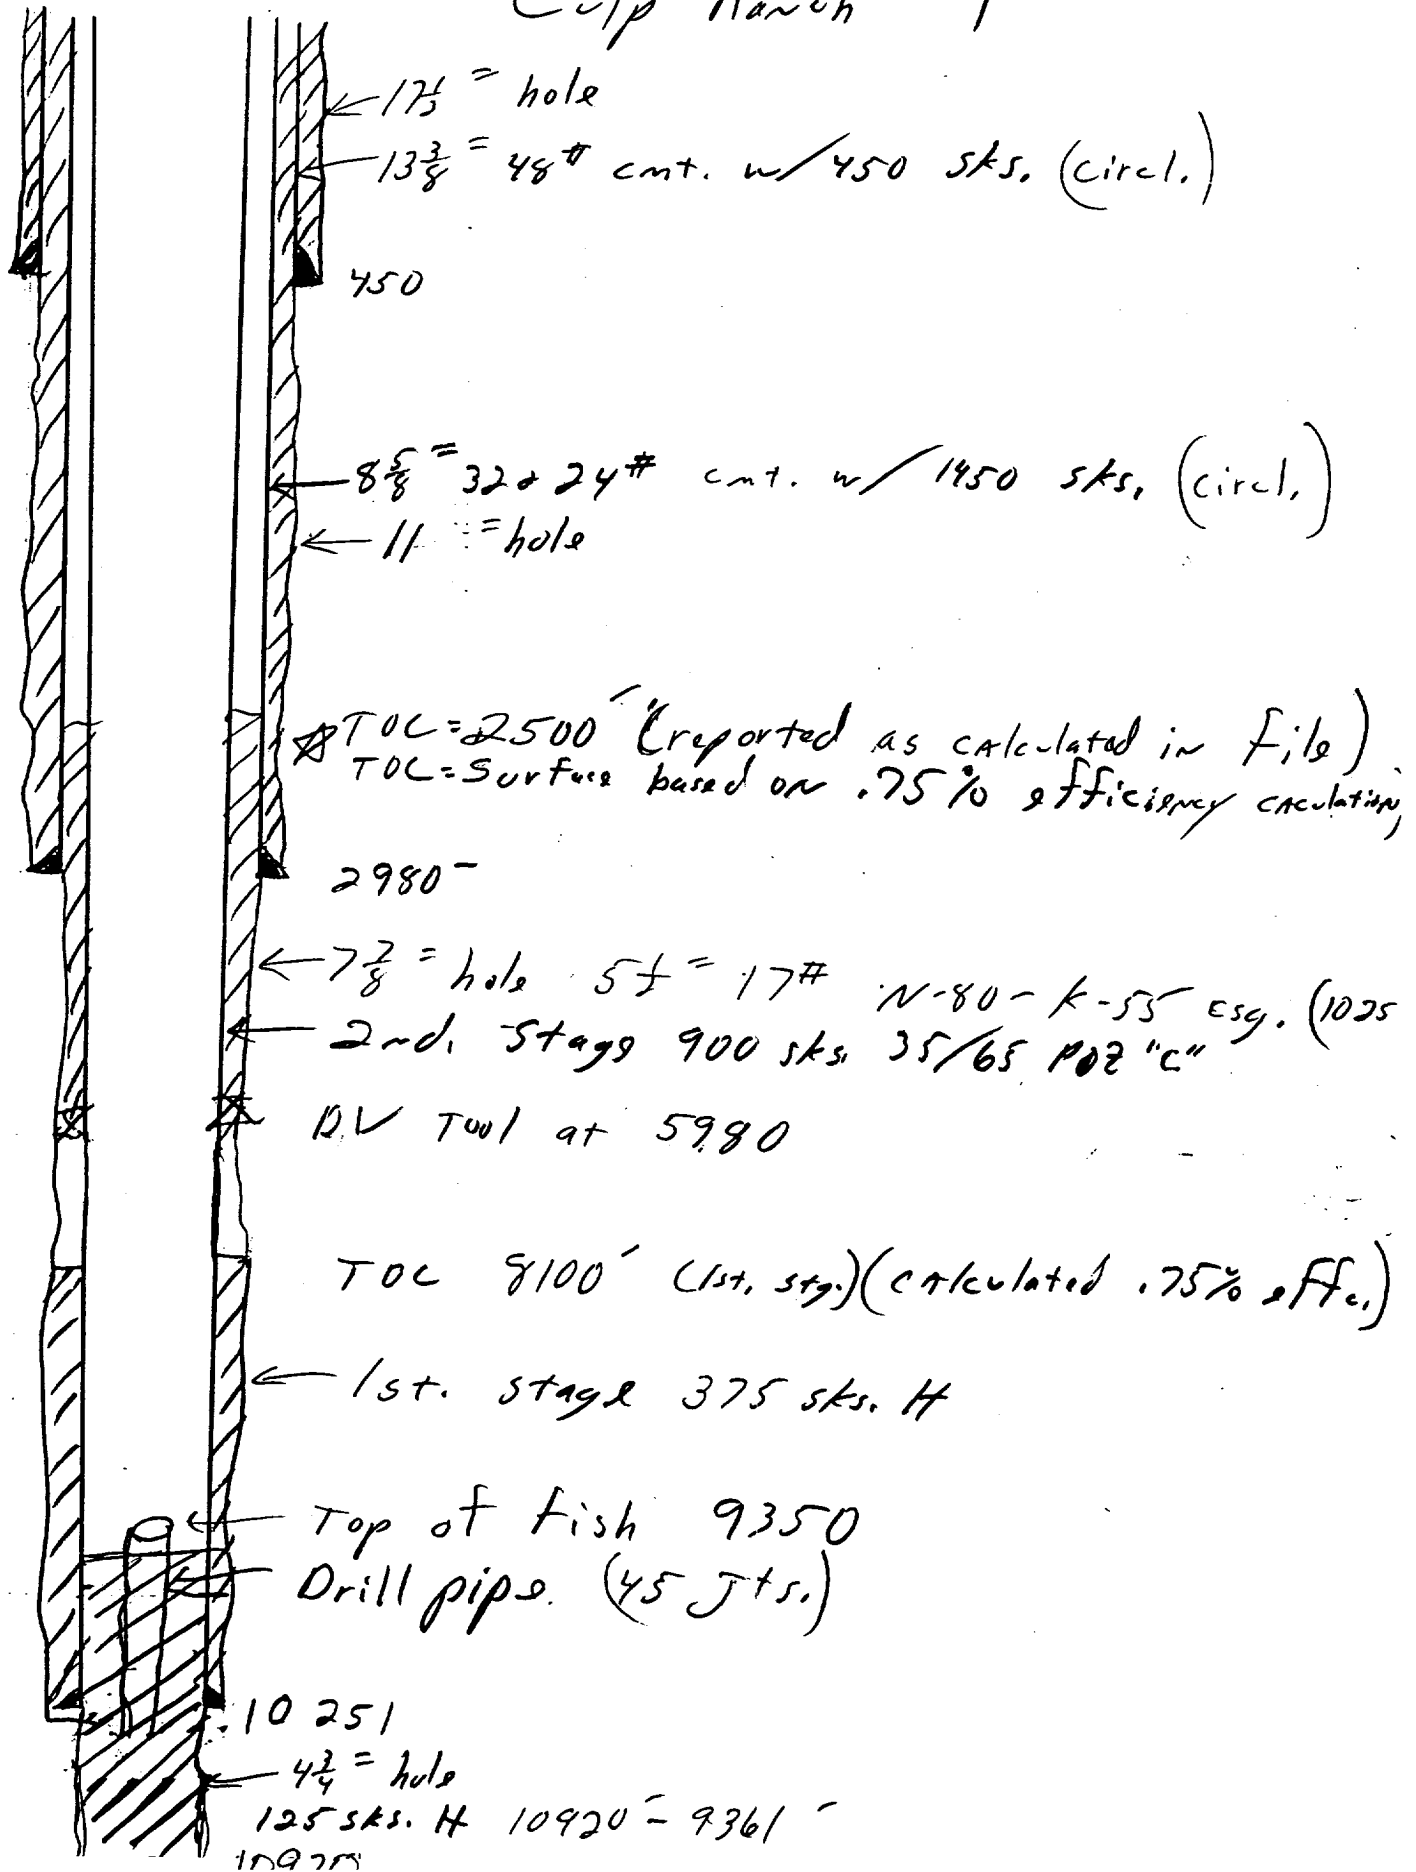 Culp Ranch 1
17½" hole
13⅜" 48# cmt. w/450 sks. (circl.)
450
8⅝" 32 & 24# cmt. w/ 1450 sks. (circl.)
11" hole
TOC=2500' (reported as calculated in file)
TOC=Surface based on .75% efficiency caculation,
2980'
7⅞" hole 5½" 17# N-80-K-55 csg. (1025
2nd. Stage 900 sks. 35/65 POZ "C"
D.V Tool at 5980
TOC 8100' (1st. stg.)(calculated .75% effc.)
1st. stage 375 sks. H
Top of fish 9350
Drill pipe. (45 Jts.)
10 251
4¾" hole
125 sks. H 10920' - 9361'
10920